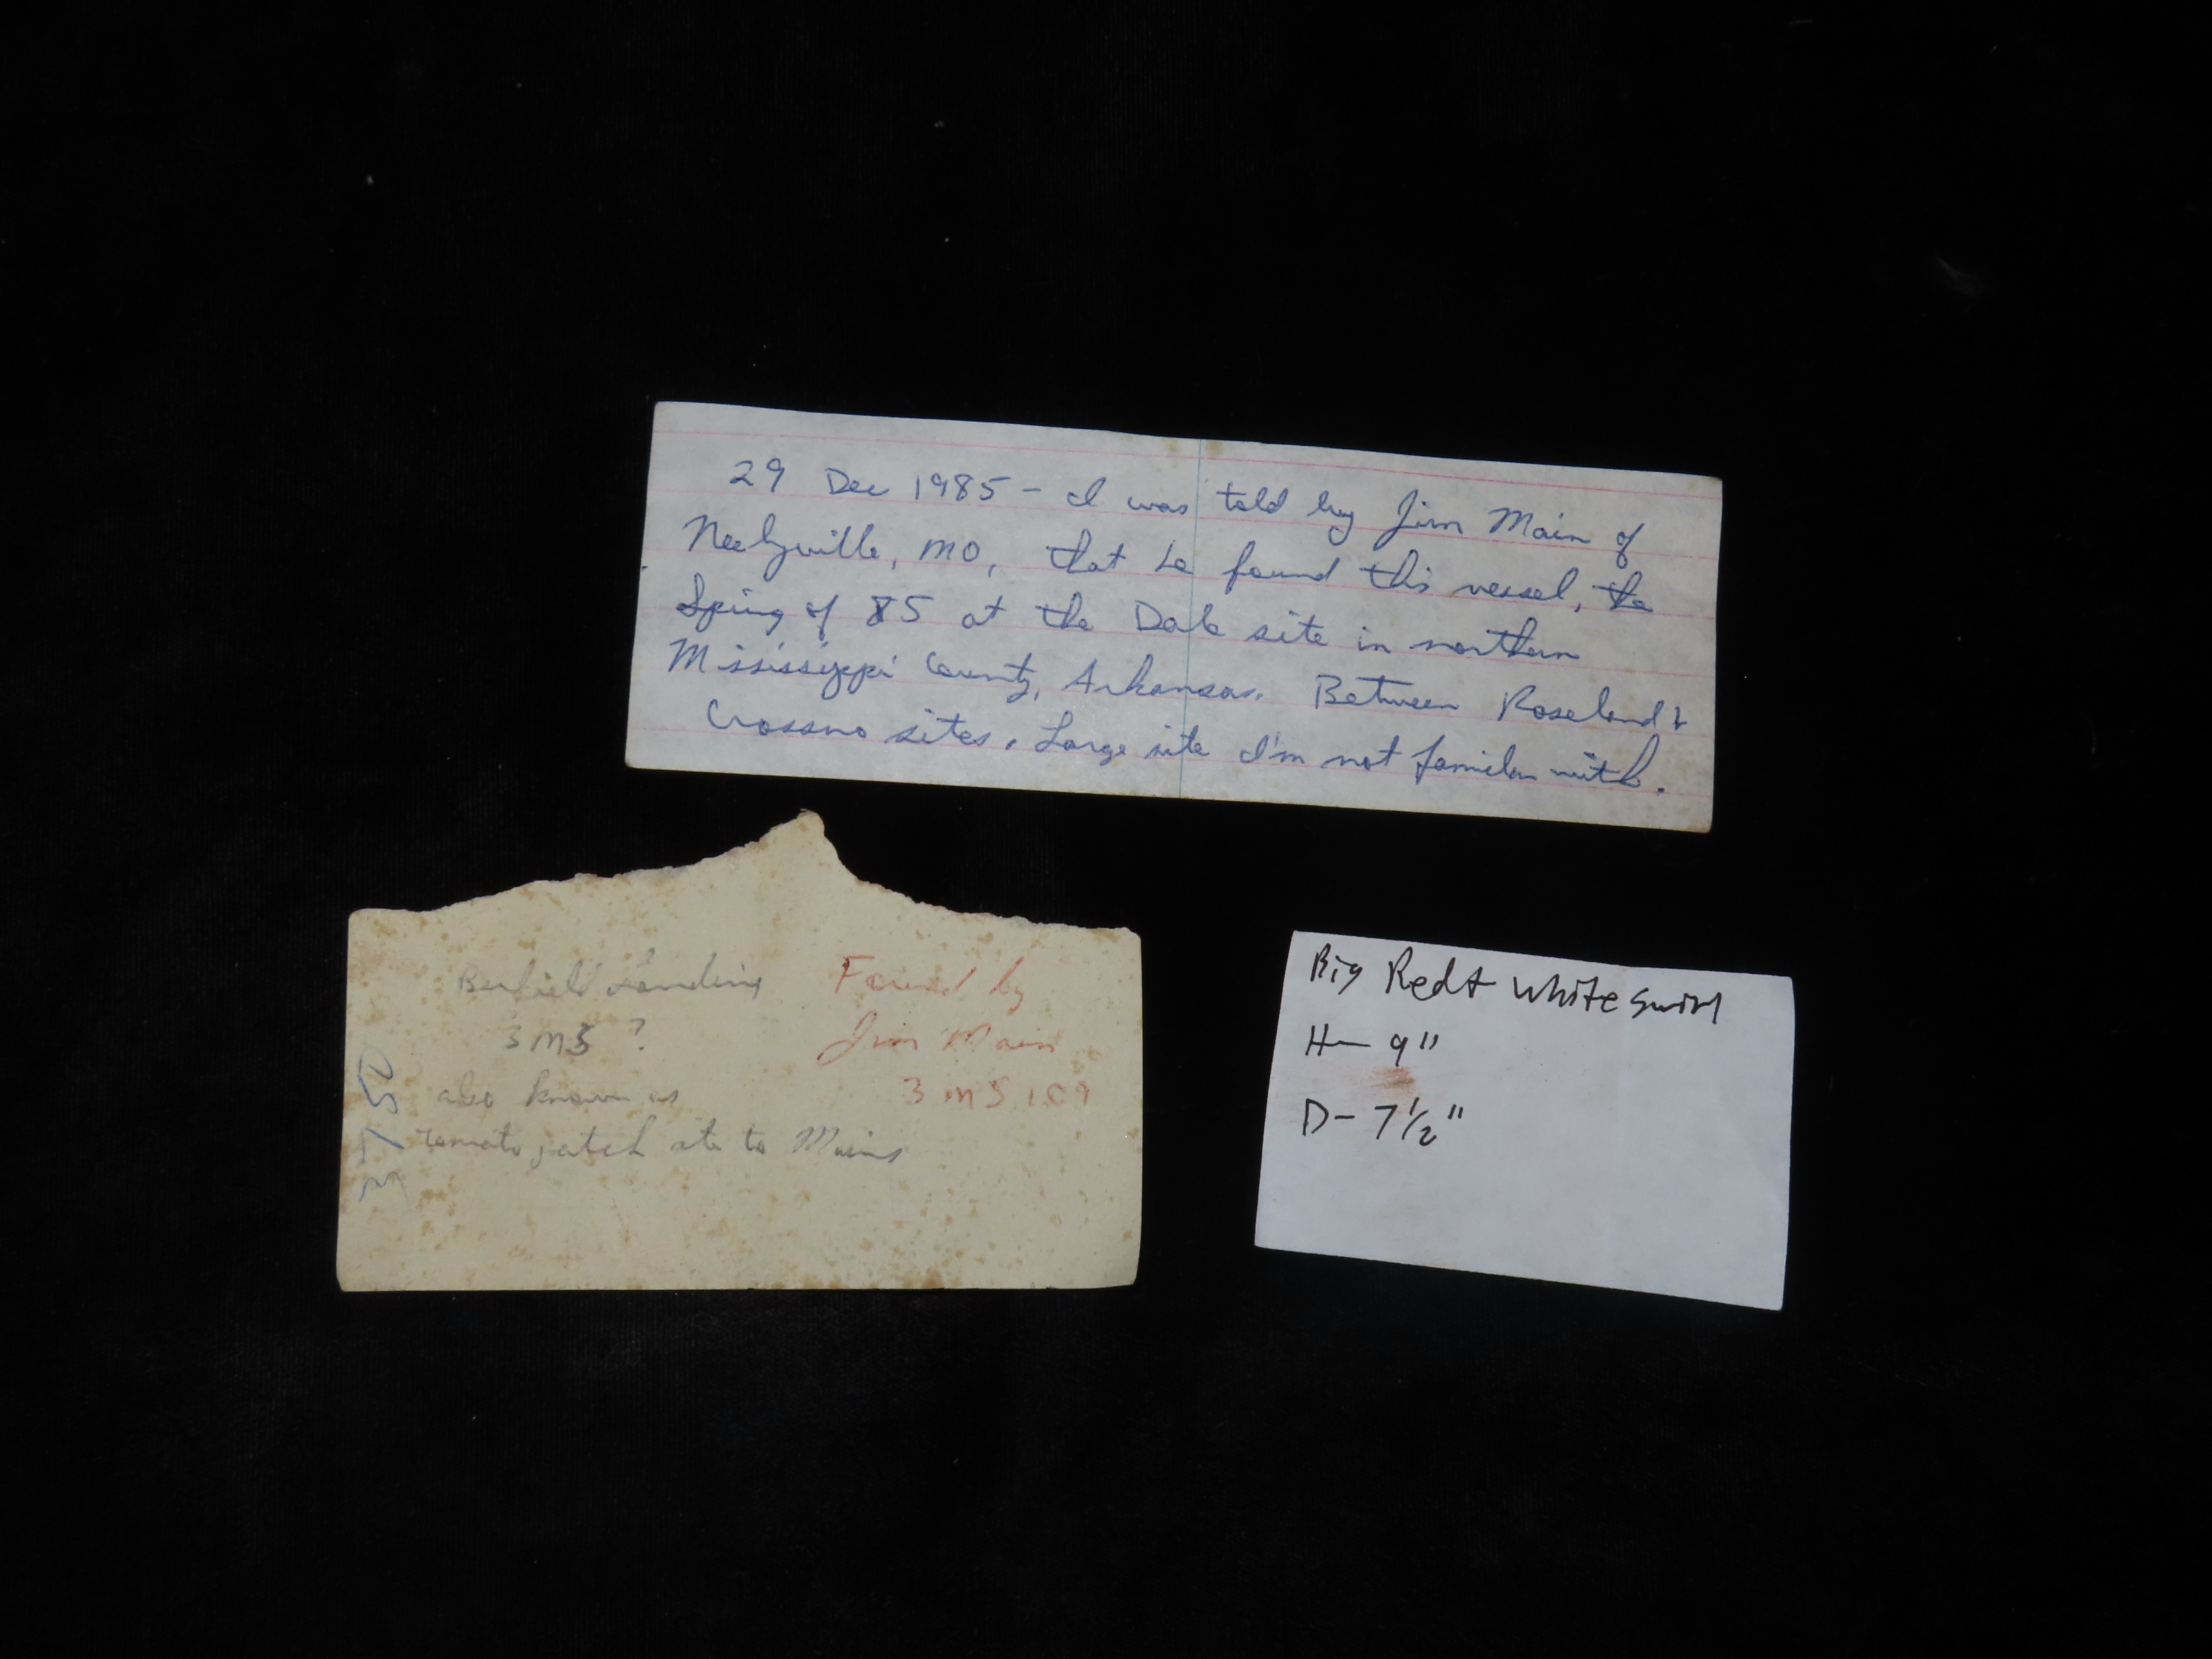 29 Dec 1985 - I was told by Jim Main of
Neelyville, MO, that he found this vessel, the
Spring of 85 at the Dale site in northern
Mississippi County, Arkansas. Between Roseland &
Crossno sites. Large site I'm not familar with.
Barfield Landing
3MS ?
also known as
tomato patch site to Mains
Found by
Jim Main
3MS109
3750
Big Red & White Swirl
H- 9"
D- 7 1/2"